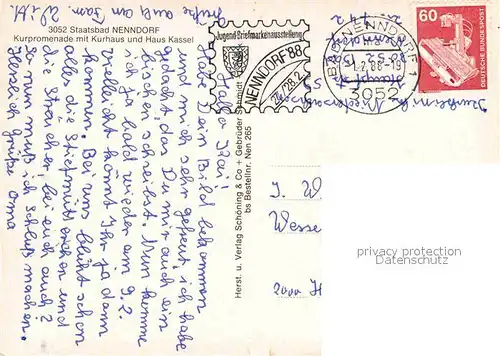 3052 Staatsbad NENNDORF
Kurpromenade mit Kurhaus und Haus Kassel
Hallo Kai!
Dein Bild bekommen
hat mich sehr gefreut, ich habe
gedacht, das Du mir auch ein
bischen schreibst. Nun komme
ich ja bald wieder am 9.2.
vielleicht könnt Ihr ja dann
kommen. Bei uns blüht schon
alles die Stiefmütterchen und
die Sträucher, bei euch auch?
Nun muß ich schluß machen.
Herzlich grüße Oma
Grüße auch an Fam.
Herst. u. Verlag Schöning & Co + Gebrüder Schmidt
bs Bestellnr. Nen 265
Jugend-Briefmarkenausstellung
NENNDORF '88
27/28.2.
BAD NENNDORF 1
-1.-2.88-19
3052
60
DEUTSCHE BUNDESPOST
J. W
Wesse
2000 H
privacy protection
Datenschutz